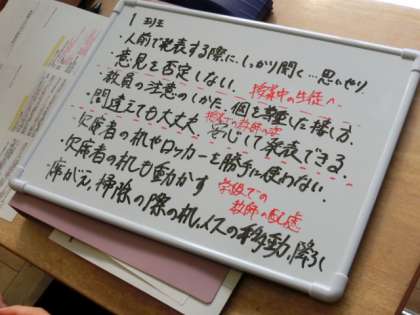 1 班
・人前で発表する際に、しっかり聞く…思いやり
・意見を否定しない。 授業中の生徒へ
・教員の注意のしかた。個を尊重した接し方。
・間違えても大丈夫。安心して発表できる。
・欠席者の机やロッカーを勝手に使わない。
・欠席者の机も動かす 学級での
教師の配慮
・席がえ、掃除の際の机、イスの移動、降ろし